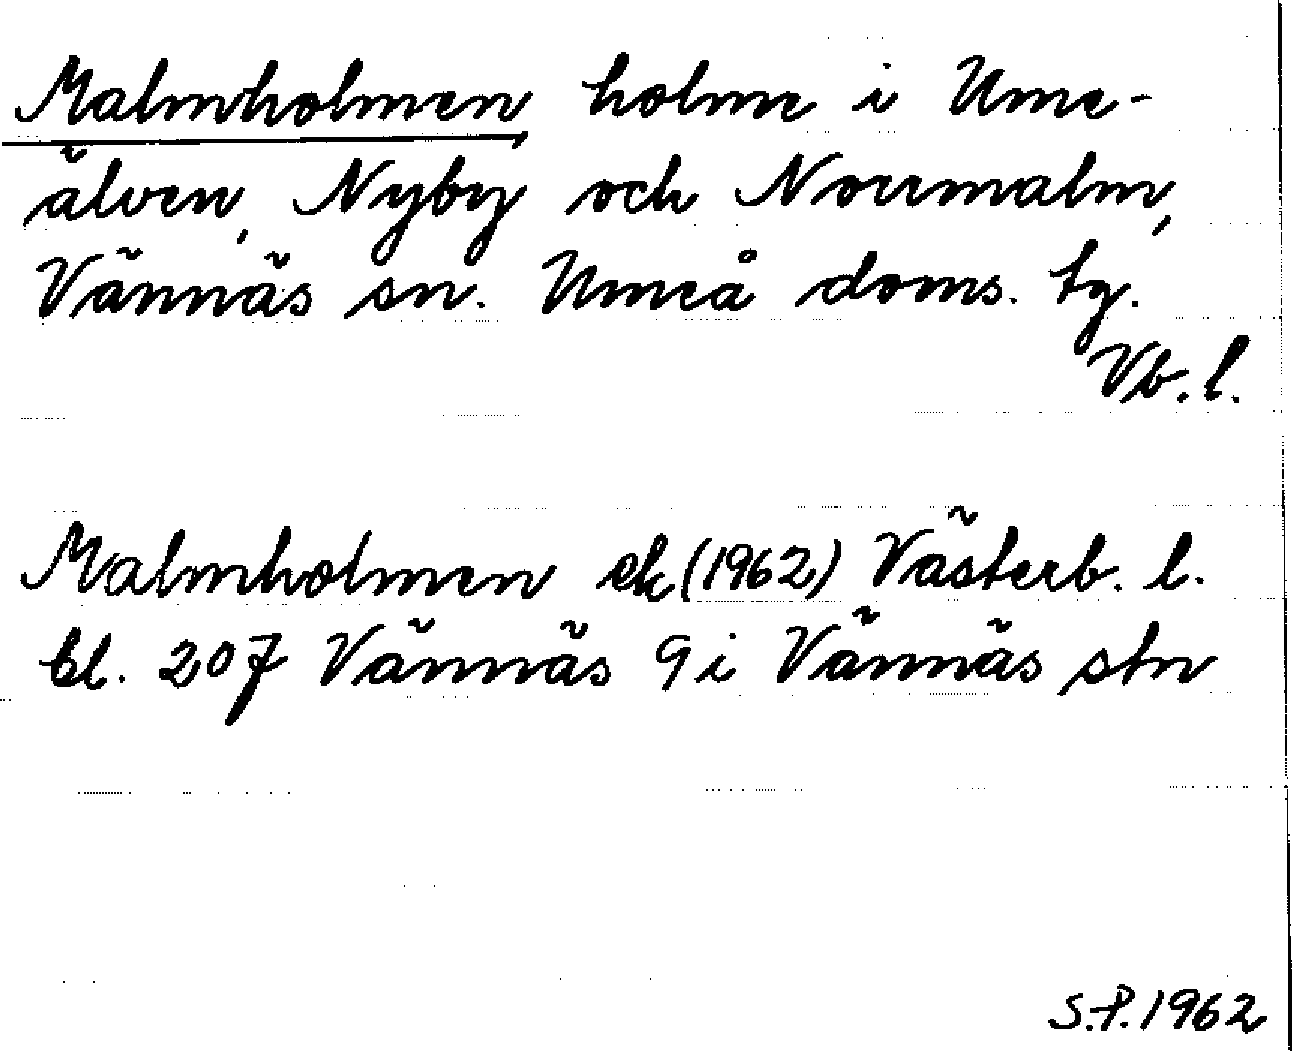 Malmholmen holme i Ume-
älven, Nyby och Norrmalm,
Vännäs sn. Umeå doms. tg.
Vb. l.
Malmholmen ek (1962) Västerb. l.
bl. 207 Vännäs 9 i Vännäs stn
S.P. 1962